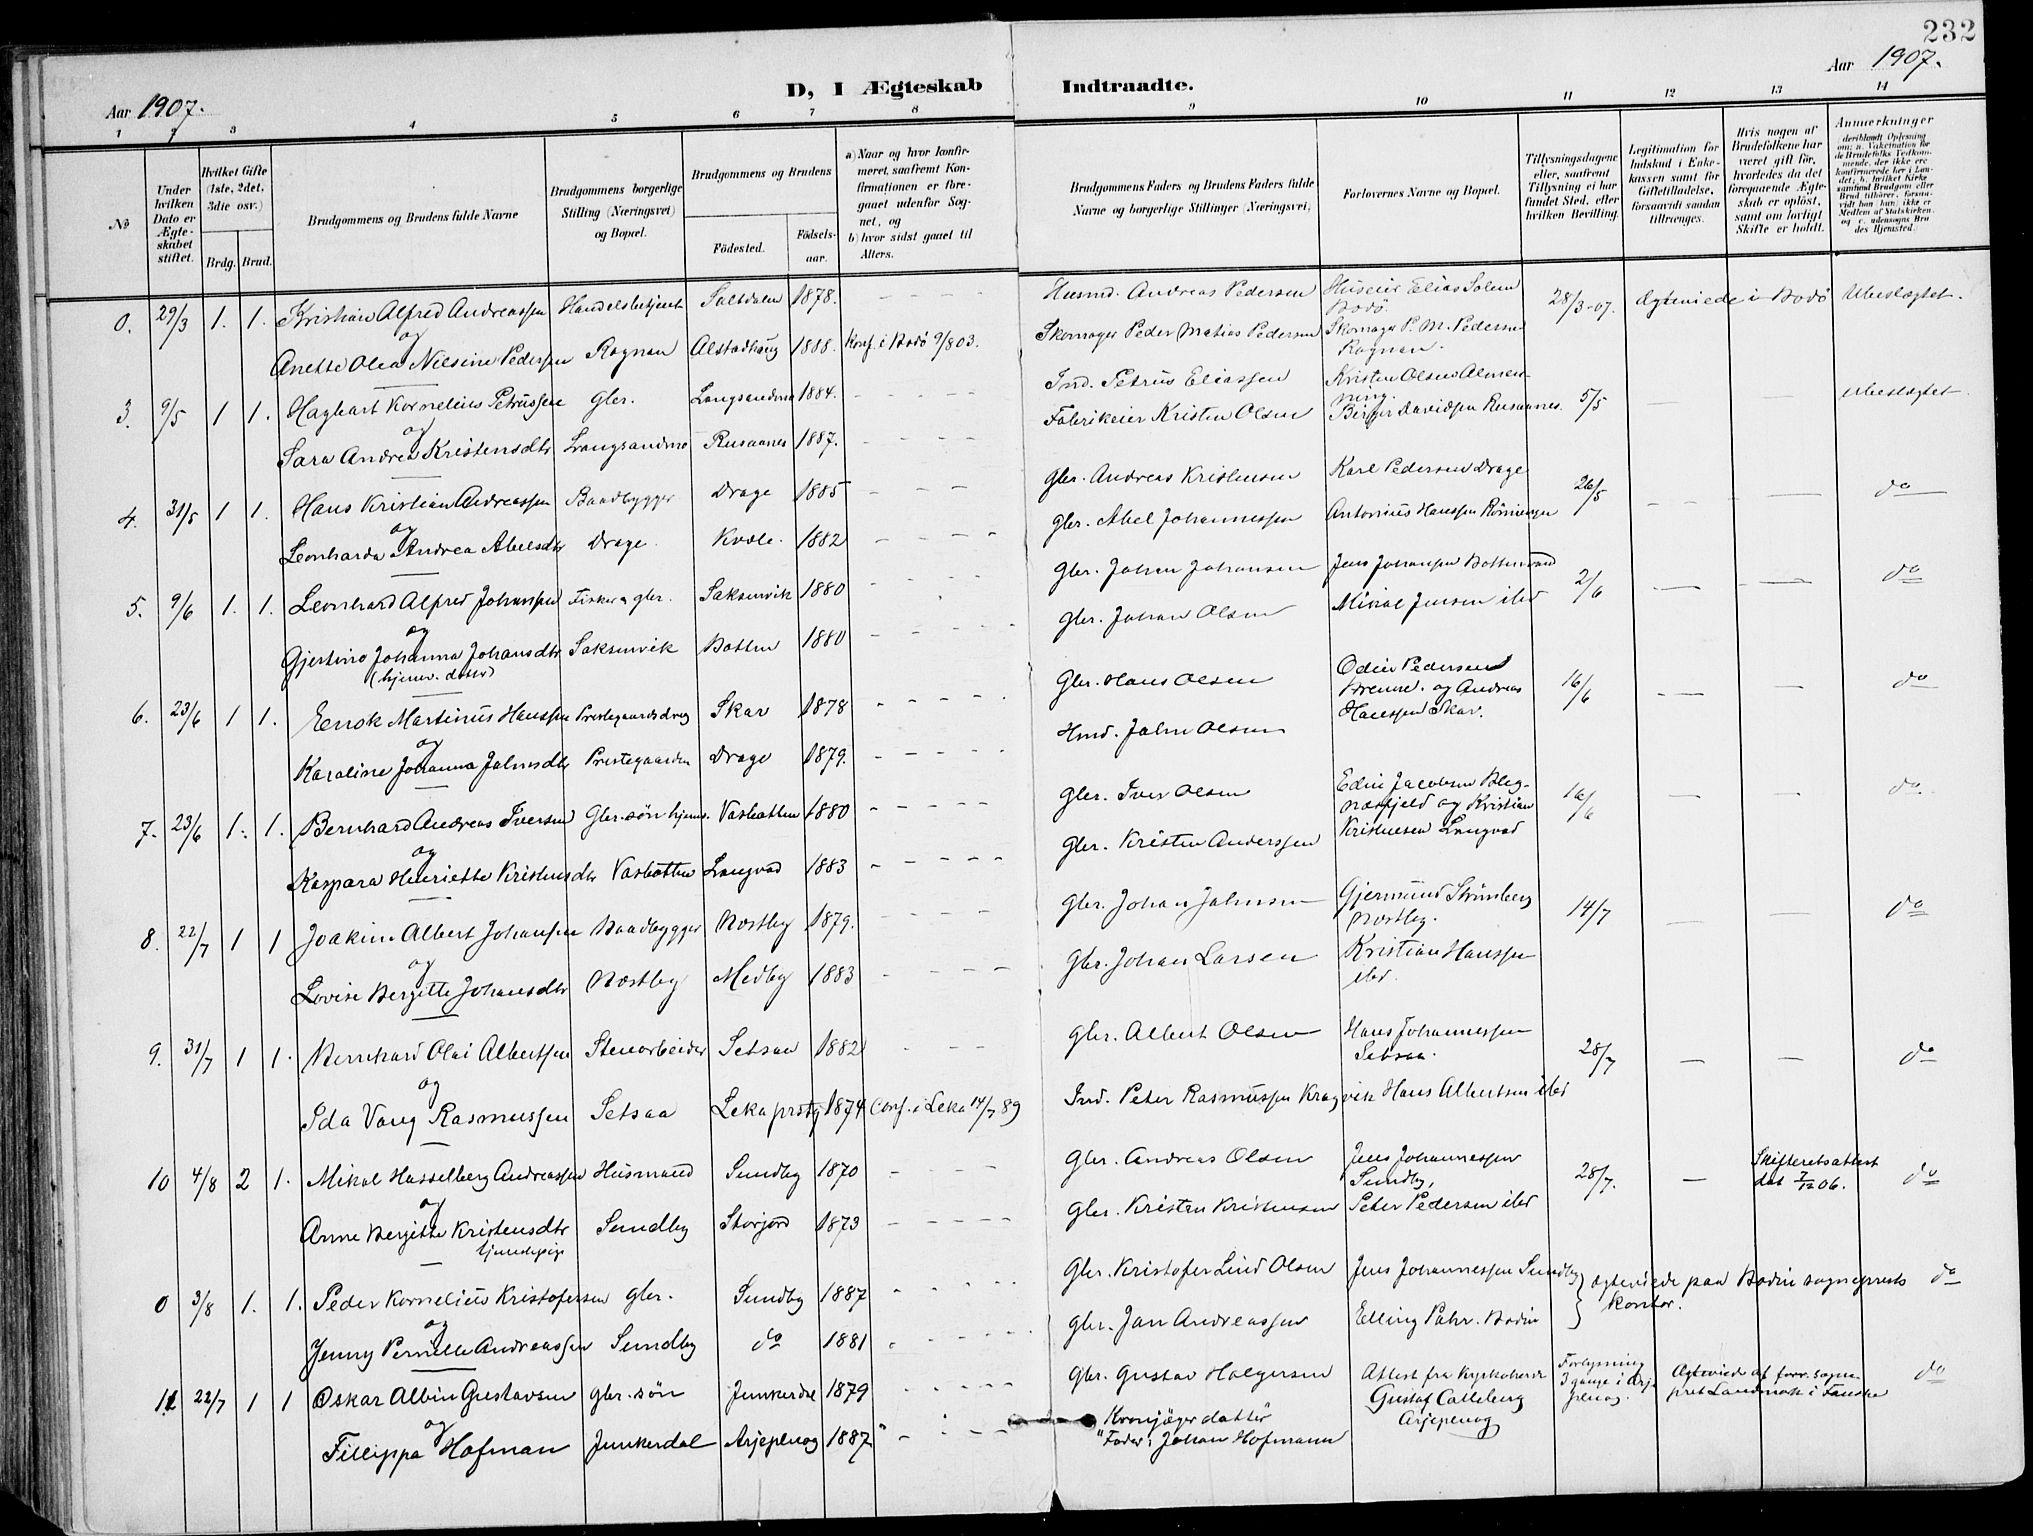 232
Aar 1907.
D, I Ægteskab Indtraadte.
Aar 1907.
1 2 3 4 5 6 7 8 9 10 11 12 13 14
No
Under hvilken Dato er Ægteskabet stiftet.
Hvilket Gifte (1ste, 2det, 3die osv.)
Brdg. Brud.
Brudgommens og Brudens fulde Navne
Brudgommens borgerlige Stilling (Næringsvei) og Bopæl.
Brudgommens og Brudens
Födested. Födselsaar.
a) Naar og hvor konfirmeret, saafremt Konfirmationen er foregaaet udenfor Sognet, og
b) hvor sidst gaaet til Alters.
Brudgommens Faders og Brudens Faders fulde Navne og borgerlige Stillinger (Næringsvei)
Forlovernes Navne og Bopæl.
Tillysningsdagene eller, saafremt Tillysning ei har fundet Sted, efter hvilken Bevilling.
Legitimation for Indskud i Enkekassen samt for Giftetilladelse, forsaavidt saadan tiltrænges.
Hvis nogen af Brudefolkene har været gift för, hvorledes da det foregaaende Ægteskab er oplöst, samt om lovligt Skifte er holdt.
Anmerkninger
0. 29/3 1. 1. Kristian Alfred Andreassen Handelsbetjent Saltdalen 1878. Husmd. Andreas Pedersen Huseier Elias Solem Bodö. 28/3-07. Ægteviede i Bodö Ubeslægtet.
og
Anette Olea Nilsine Pedersen Rognan Alstadhaug 1888. Konf. i Bodö 9/8 03. Skomager Peder Matias Pedersen Skomager P. M. Pedersen Rognan.
3. 9/5 1 1. Hagbart Kornelius Petrussen Gbr. Langsandmo 1884. Ind. Petrus Eliassen Kristen Olsen Almenning. 5/5 — ubeslægtet.
og
Sara Andrea Kristensdtr Langsandmo Rusaanes 1887. Fabrikeier Kristen Olsen Birger Davidsen Rusaanes.
4. 31/5 1 1. Hans Kristian Andreassen Baadbygger Drage 1885 Gbr. Andreas Kristensen Karl Pedersen Drage 26/5 — — do
og
Leonharda Andrea Abelsdtr Drage. Kvæle. 1882 Gbr. Abel Johannessen Antonius Hanssen
5. 9/6 1. 1. Leonhard Alfred Johansen Fisker & gbr. Saksenvik 1880 Gbr. Johan Johansen Jens Johansen Bottenvand 2/6 — — do
og
Gjertine Johanna Johansdtr Saksenvik Botten 1880 Gbr. Johan Olsen Mikal Jensen ibd
(hjemv. datter)
6. 23/6 1 1. Enok Martinus Hanssen Prestegaardsdreng Skar 1878 Gbr. Hans Olsen Odin Pedersen Brenne. og Andreas Hanssen Skar. 16/6 — — do
og
Karoline Johanna Johnsdtr Prestegaarden Drage 1879. Hmd. John Olsen
7. 23/6 1. 1. Bernhard Andreas Iversen Gbr. sön hjemv. Vasbotten 1880 Gbr. Iver Olsen Edin Jacobsen Blegnæsfjeld og Kristian Kristensen Langvad 16/6 — — do.
og
Kaspara Henriette Kristensdtr Vasbotten Langvad 1883 Gbr. Kristen Anderssen
8. 22/7 1 1 Joakim Albert Johansen Baadbygger Næstby 1879. Gbr. Johan Johnsen Gjermund Strömberg Næstby. 14/7 — — do
og
Lovise Bergitte Johansdtr Næstby Medby 1883 Gbr. Johan Larsen Kristian Hanssen ibd.
9. 31/7 1 1. Bernhard Olai Albertsen Stenarbeider Setsaa 1882 Gbr. Albert Olsen Hans Johannessen Setsaa. 28/7 — — do
og
Ida Vang Rasmussen Setsaa Leka prstg 1874 Conf. i Leka 14/7 89 Ind. Peter Rasmussen Kragvik Hans Albertsen ibd
10 4/8 2 1. Mikal Hasselberg Andreassen Husmand Sundby 1870 Gbr. Andreas Olsen Jens Johannessen Sundby, 28/7. — Skifteretsattest dat 7/12 06. do
og
Anne Bergitte Kristensdtr Sundby Storjord 1873 Gbr. Kristen Kristensen Peter Pedersen ibd
tjenestepige
0 3/8 1. 1. Peder Kornelius Kristofersen gbr. Sundby 1887 Gbr. Kristofer Lind Olsen Jens Johannessen Sundby } Ægteviede paa Bodin sogneprests kontor. do
og
Jenny Pernille Andreassen Sundby do 1881 Gbr. Jan Andreassen Elling Pahr. Bodin
11 22/7 1 1 Oskar Albin Gustavsen gbr. sön Junkerdal 1879 Gbr. Gustav Holgersen Attest fra Kyrkoherde Gustaf Calleberg Arjeplog Forlysning 3 gange i Arjeplog. Ægteviede af forr. sognepret Landmark i Fauske do
og
Fillippa Hofman Junkerdal Arjeplog 1887 Kronjäger datter
"Fader: Johan Hofmann